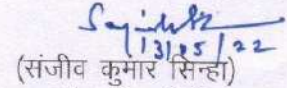 13/05/22
(संजीव कुमार सिन्हा)